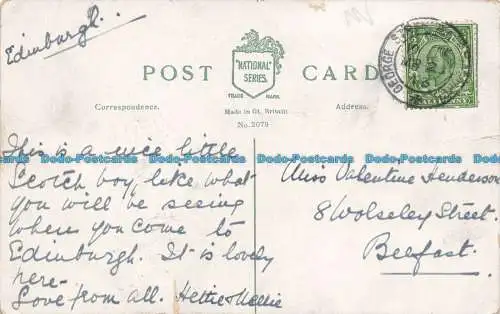 Edinburgh.
POST CARD
"NATIONAL"
SERIES
TRADE MARK
Correspondence.
Made in Gt. Britain
Address.
No. 2079
GEORGE ST
This is a nice little
Scotch boy, like what
you will be seeing
when you come to
Edinburgh. It is lovely
here-
Love from all. Hettie & Nellie
Miss Valentine Henderson
8 Wolseley Street.
Belfast.
Dodo-Postcards Dodo-Postcards Dodo-Postcards Dodo-Postcards Dodo-Postcards